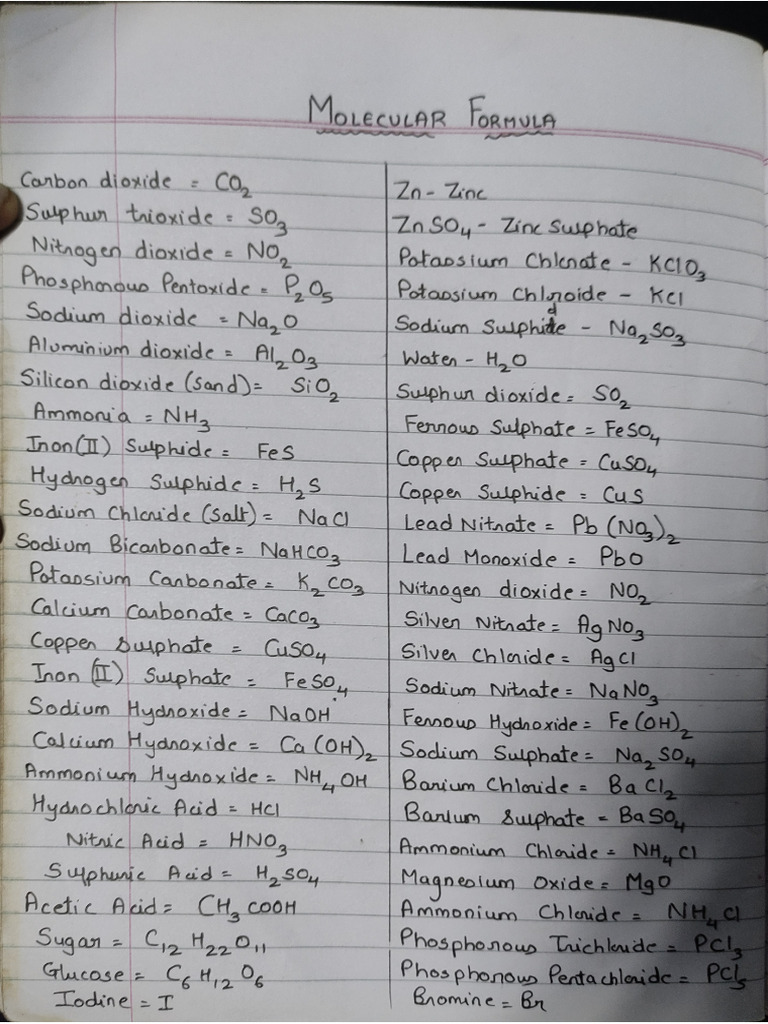 MOLECULAR FORMULA
Carbon dioxide = CO₂
Sulphur trioxide = SO₃
Nitrogen dioxide = NO₂
Phosphorous Pentoxide = P₂O₅
Sodium dioxide = Na₂O
Aluminium dioxide = Al₂O₃
Silicon dioxide (sand) = SiO₂
Ammonia = NH₃
Iron (II) Sulphide = FeS
Hydrogen Sulphide = H₂S
Sodium Chloride (salt) = NaCl
Sodium Bicarbonate = NaHCO₃
Potassium Carbonate = K₂CO₃
Calcium Carbonate = CaCO₃
Copper Sulphate = CuSO₄
Iron (II) Sulphate = FeSO₄
Sodium Hydroxide = NaOH
Calcium Hydroxide = Ca(OH)₂
Ammonium Hydroxide = NH₄OH
Hydrochloric Acid = HCl
Nitric Acid = HNO₃
Sulphuric Acid = H₂SO₄
Acetic Acid = CH₃COOH
Sugar = C₁₂H₂₂O₁₁
Glucose = C₆H₁₂O₆
Iodine = I
Zn - Zinc
ZnSO₄ - Zinc Sulphate
Potassium Chlorate - KClO₃
Potassium Chloroide - KCl
Sodium Sulphide - Na₂SO₃
Water - H₂O
Sulphur dioxide = SO₂
Ferrous Sulphate = FeSO₄
Copper Sulphate = CuSO₄
Copper Sulphide = CuS
Lead Nitrate = Pb(NO₃)₂
Lead Monoxide = PbO
Nitrogen dioxide = NO₂
Silver Nitrate = AgNO₃
Silver Chloride = AgCl
Sodium Nitrate = NaNO₃
Ferrous Hydroxide = Fe(OH)₂
Sodium Sulphate = Na₂SO₄
Barium Chloride = BaCl₂
Barium Sulphate = BaSO₄
Ammonium Chloride = NH₄Cl
Magnesium Oxide = MgO
Ammonium Chloride = NH₄Cl
Phosphorous Trichloride = PCl₃
Phosphorous Pentachloride = PCl₅
Bromine = Br